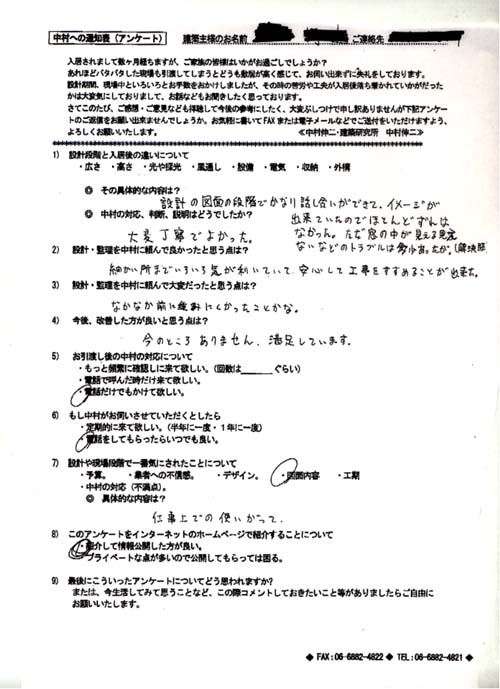 中村への通知表(アンケート)　建築主様のお名前　ご連絡先
入居されまして数ヶ月経ちますが、ご家族の皆様はいかがお過ごしでしょうか?
あれほどバタバタした現場も引渡してしまうとどうも敷居が高く感じて、お伺い出来ずに失礼をしております。
設計期間、現場中といろいろとお手数をおかけしましたが、その時の苦労や工夫が入居後落ち着かれていかがだった
かは大変気にしておりまして、お話などもお聞きしたく思っております。
さてこのたび、ご感想・ご意見なども拝聴して今後の参考にしたく、大変ぶしつけで申し訳ありませんが下記アンケー
トのご返信をお願い出来ませんでしょうか。お気軽に書いてFAXまたは電子メールなどでご送付をいただけますよう、
よろしくお願いいたします。　≪中村伸二・建築研究所　中村伸二≫
1)　設計段階と入居後の違いについて
・広さ　・高さ　・光や採光　・風通し　・設備　・電気　・収納　・外構
◎　その具体的な内容は?
設計の図面の段階でかなり話し合いができて、イメージが
出来ていたのでほとんどずれは
なかった。ただ窓の中が見える見え
ないなどのトラブルは多少あったが。(解決済
◎　中村の対応、判断、説明はどうでしたか?
大変丁寧でよかった。
2)　設計・監理を中村に頼んで良かったと思う点は?
細かい所までいろいろ気が利いていて、安心して工事をすすめることが出来た。
3)　設計・監理を中村に頼んで大変だったと思う点は?
なかなか前に進みにくかったことかな。
4)　今後、改善した方が良いと思う点は?
今のところありません、満足しています。
5)　お引渡し後の中村の対応について
・もっと頻繁に確認しに来て欲しい。(回数は______ぐらい)
・電話で呼んだ時だけ来て欲しい。
・電話だけでもかけて欲しい。
6)　もし中村がお伺いさせていただくとしたら
・定期的に来て欲しい。(半年に一度・1年に一度)
・電話をしてもらったらいつでも良い。
7)　設計や現場段階で一番気にされたことについて
・予算。　・業者への不信感。　・デザイン。　・図面内容　・工期
・中村の対応(不満点)。
◎　具体的な内容は?
仕事上での使いがって.
8)　このアンケートをインターネットのホームページで紹介することについて
・紹介して情報公開した方が良い。
・プライベートな点が多いので公開してもらっては困る。
9)　最後にこういったアンケートについてどう思われますか?
または、今生活してみて思うことなど、この際コメントしておきたいこと等がありましたらご自由に
お願いいたします。
◆ FAX:06-6882-4822 ◆ TEL:06-6882-4821 ◆